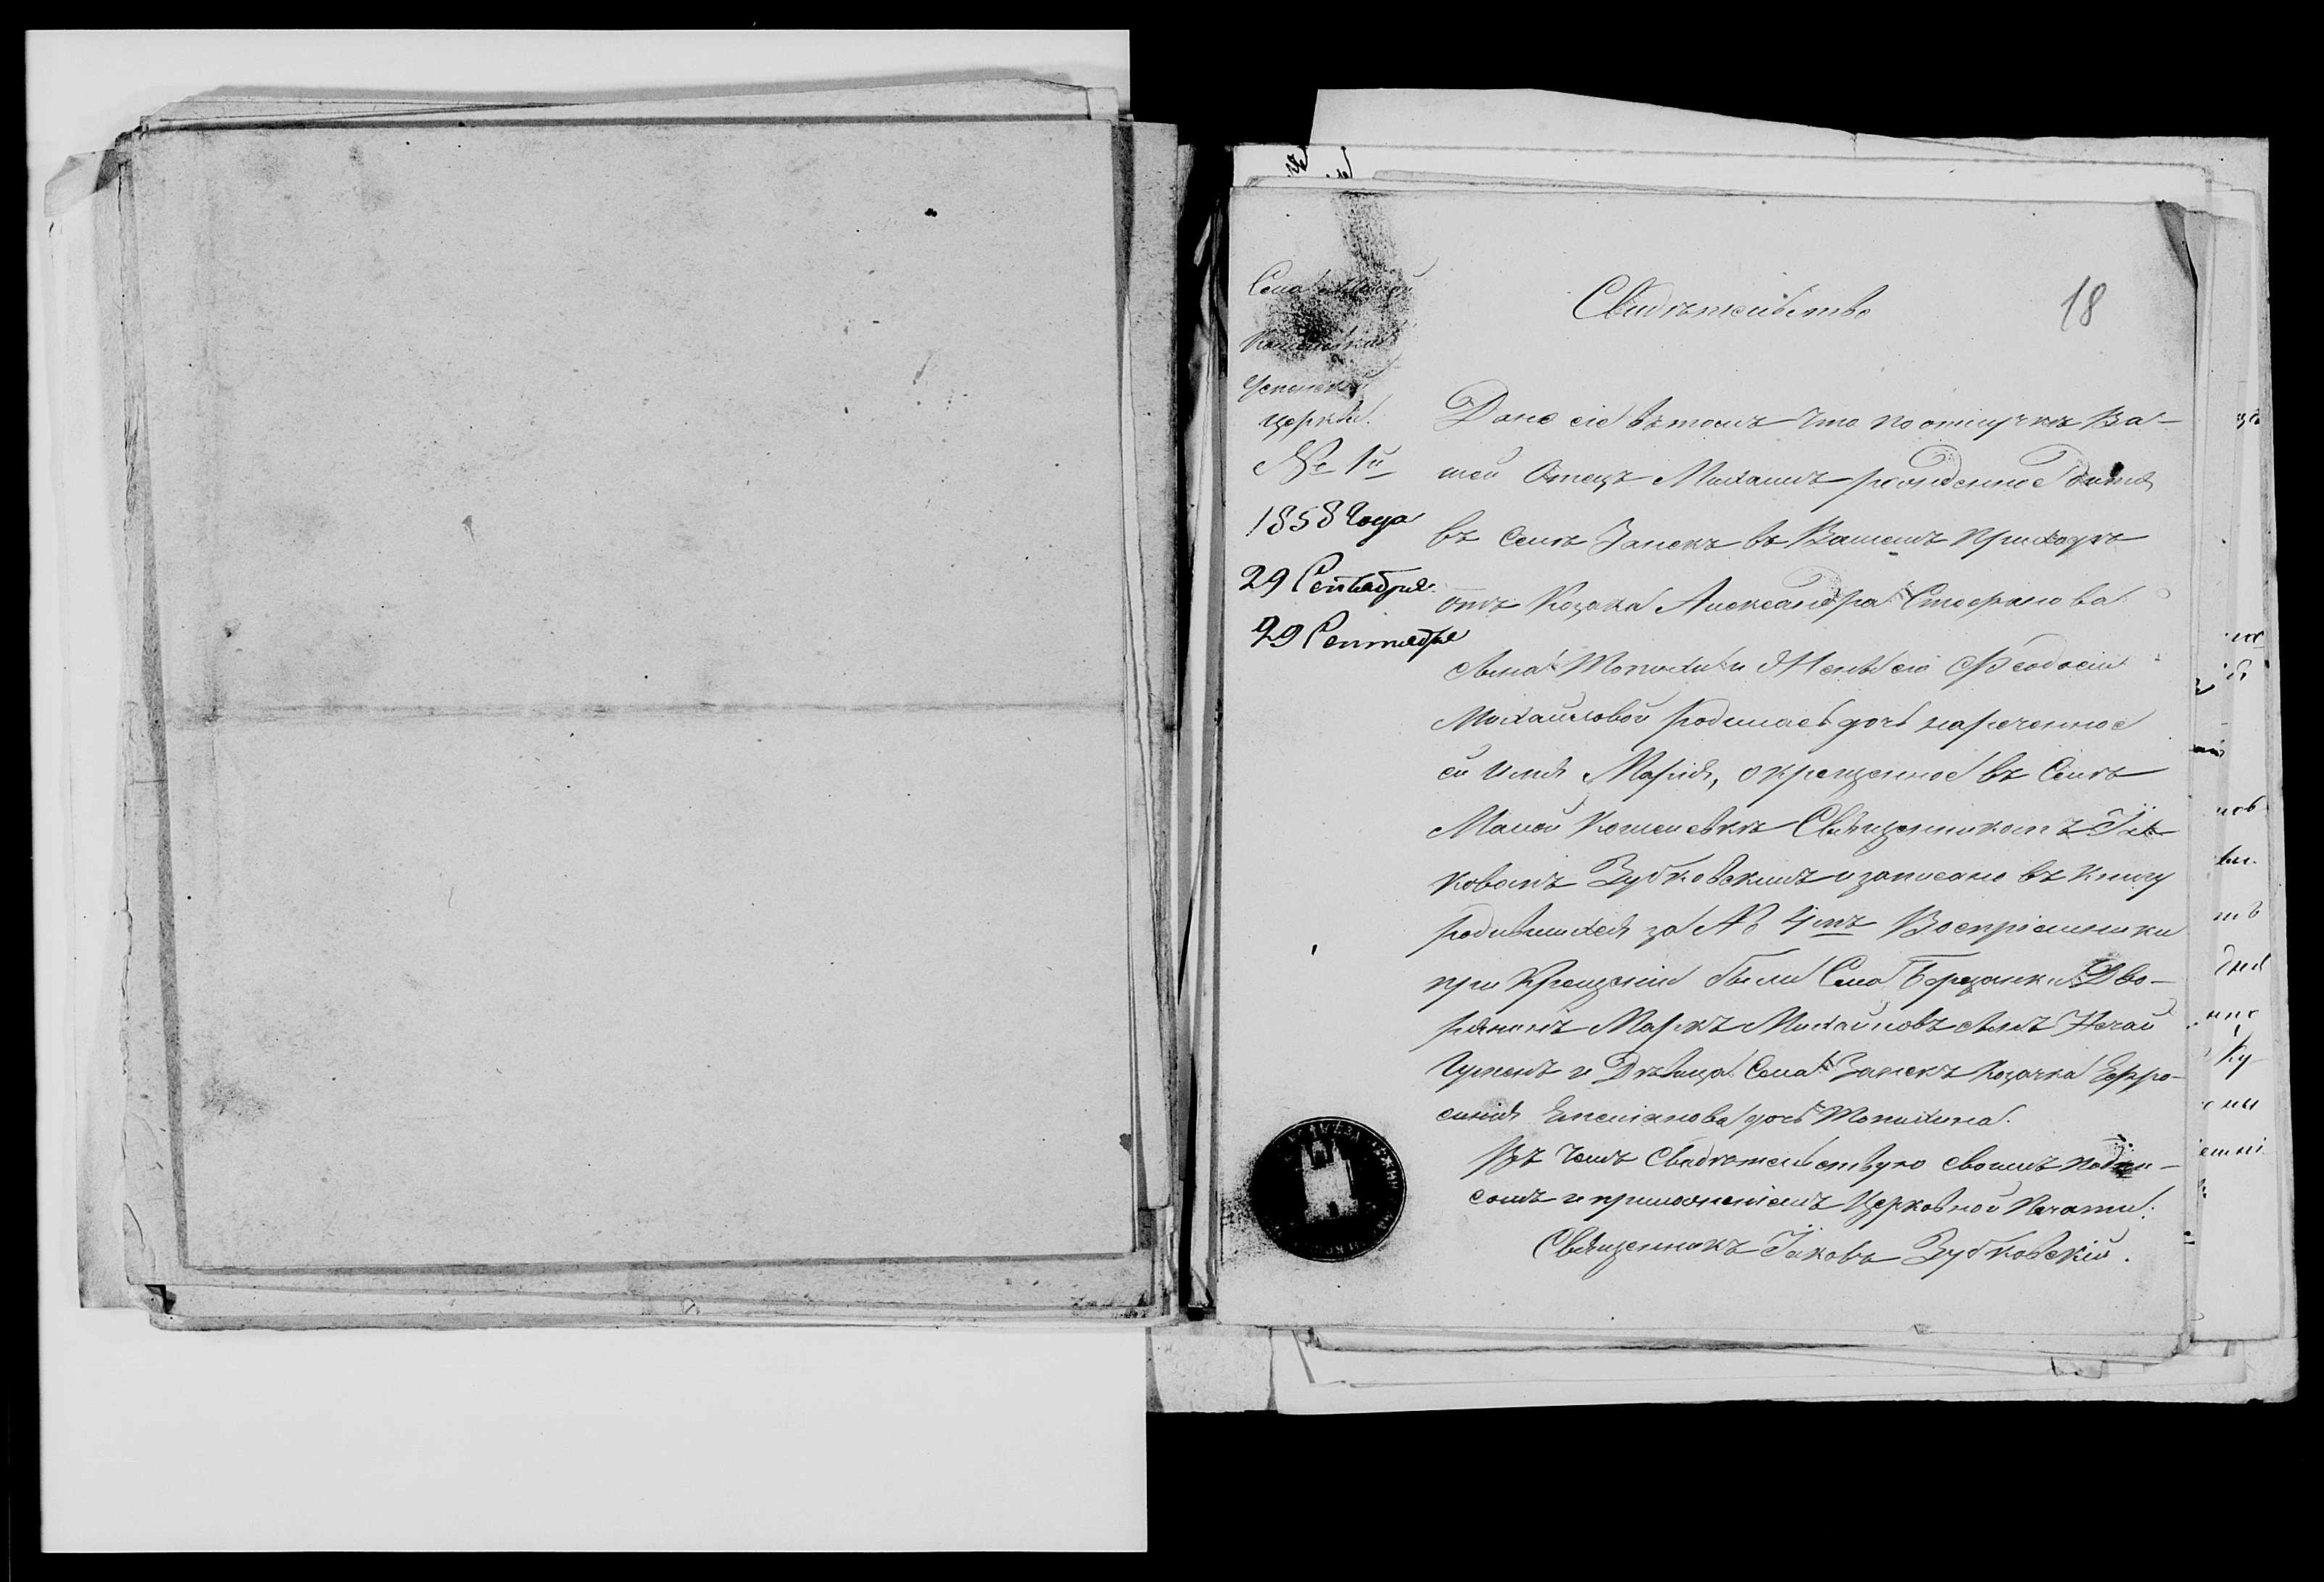 18
Свидѣтельство
Села Малой
Кошелевки
Успенской
церкви.
№ 1й
1858 года
29 Сентября
29 Сентября
Дано сіе въ томъ что по отлучкѣ Ва-
шей Отецъ Михаилъ рожденное дитя
въ селѣ Занекъ въ Вашемъ приходѣ
отъ Козака Александра Стефанова
сына и Жены его Феодосіи
Михайловой родилась дочь нареченное
ей имя Марія, окрещенное въ Селѣ
Малой Кошелевкѣ Священникомъ Іа-
ковомъ Зубковскимъ и записано въ книгу
родившихся за № 4мъ Воспріемники
при Крещеніи были Села Березанки Дво-
рянинъ Маркъ Михайловъ сынъ
и Дѣвица Села Занекъ Козачка Евфро-
синія Емелianова дочь
Въ чемъ свидѣтельствую своимъ подпи-
сомъ и приложеніемъ Церковной Печати.
Священникъ Іаковъ Зубковскій.